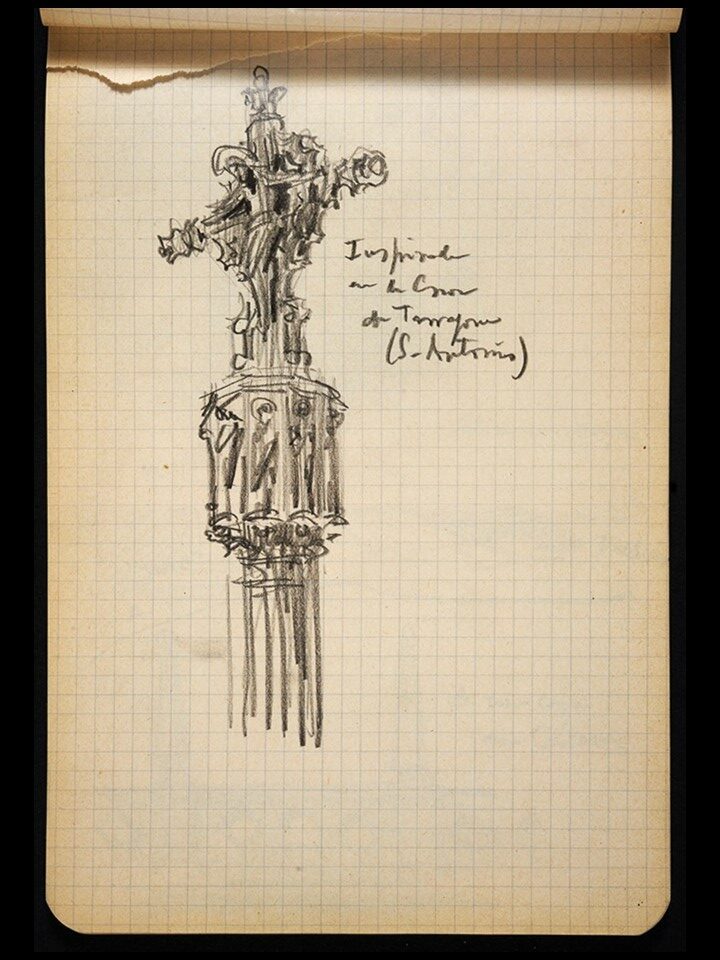 Inspirada
en la Creu
de Tarragona
(S. Antonio)